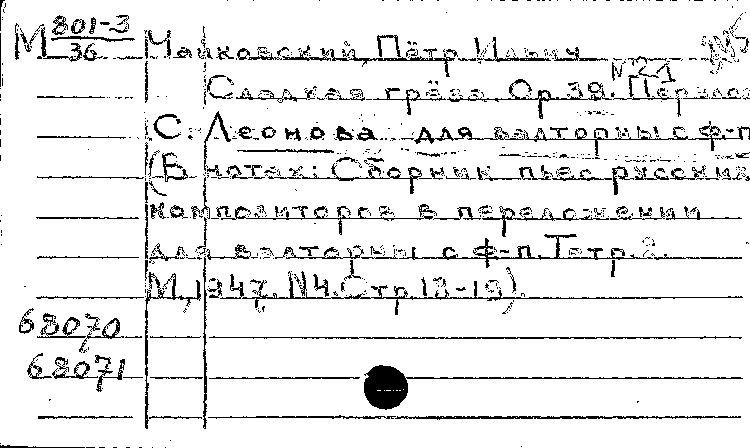 М 801-3
36
Чайковский, Пётр Ильич
Сладкая грёза. Ор. 39. №21 Перелож
С. Леонова для валторны с ф-п
(В нотах: Сборник пьес русских
композиторов в переложении
для валторны с ф-п. Тетр. 2.
М., 1947. №4. Стр. 18-19).
68070
68071